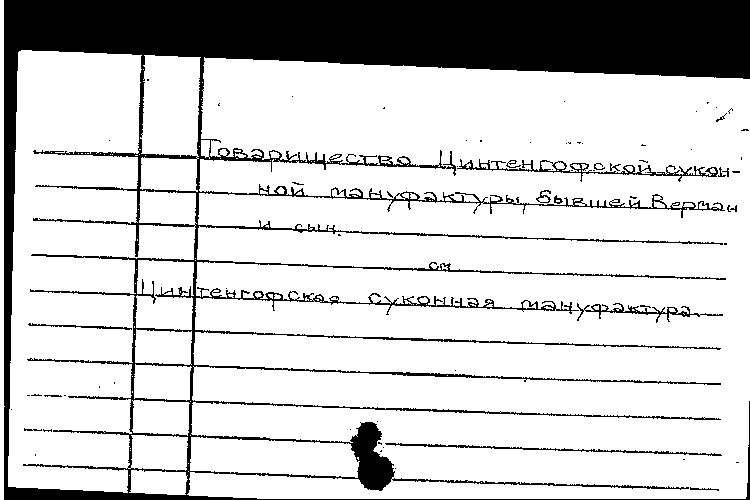 Товарищество Цинтенгофской сукон-
ной мануфактуры, бывшей Верман
и сын.
см
Цинтенгофская суконная мануфактура.